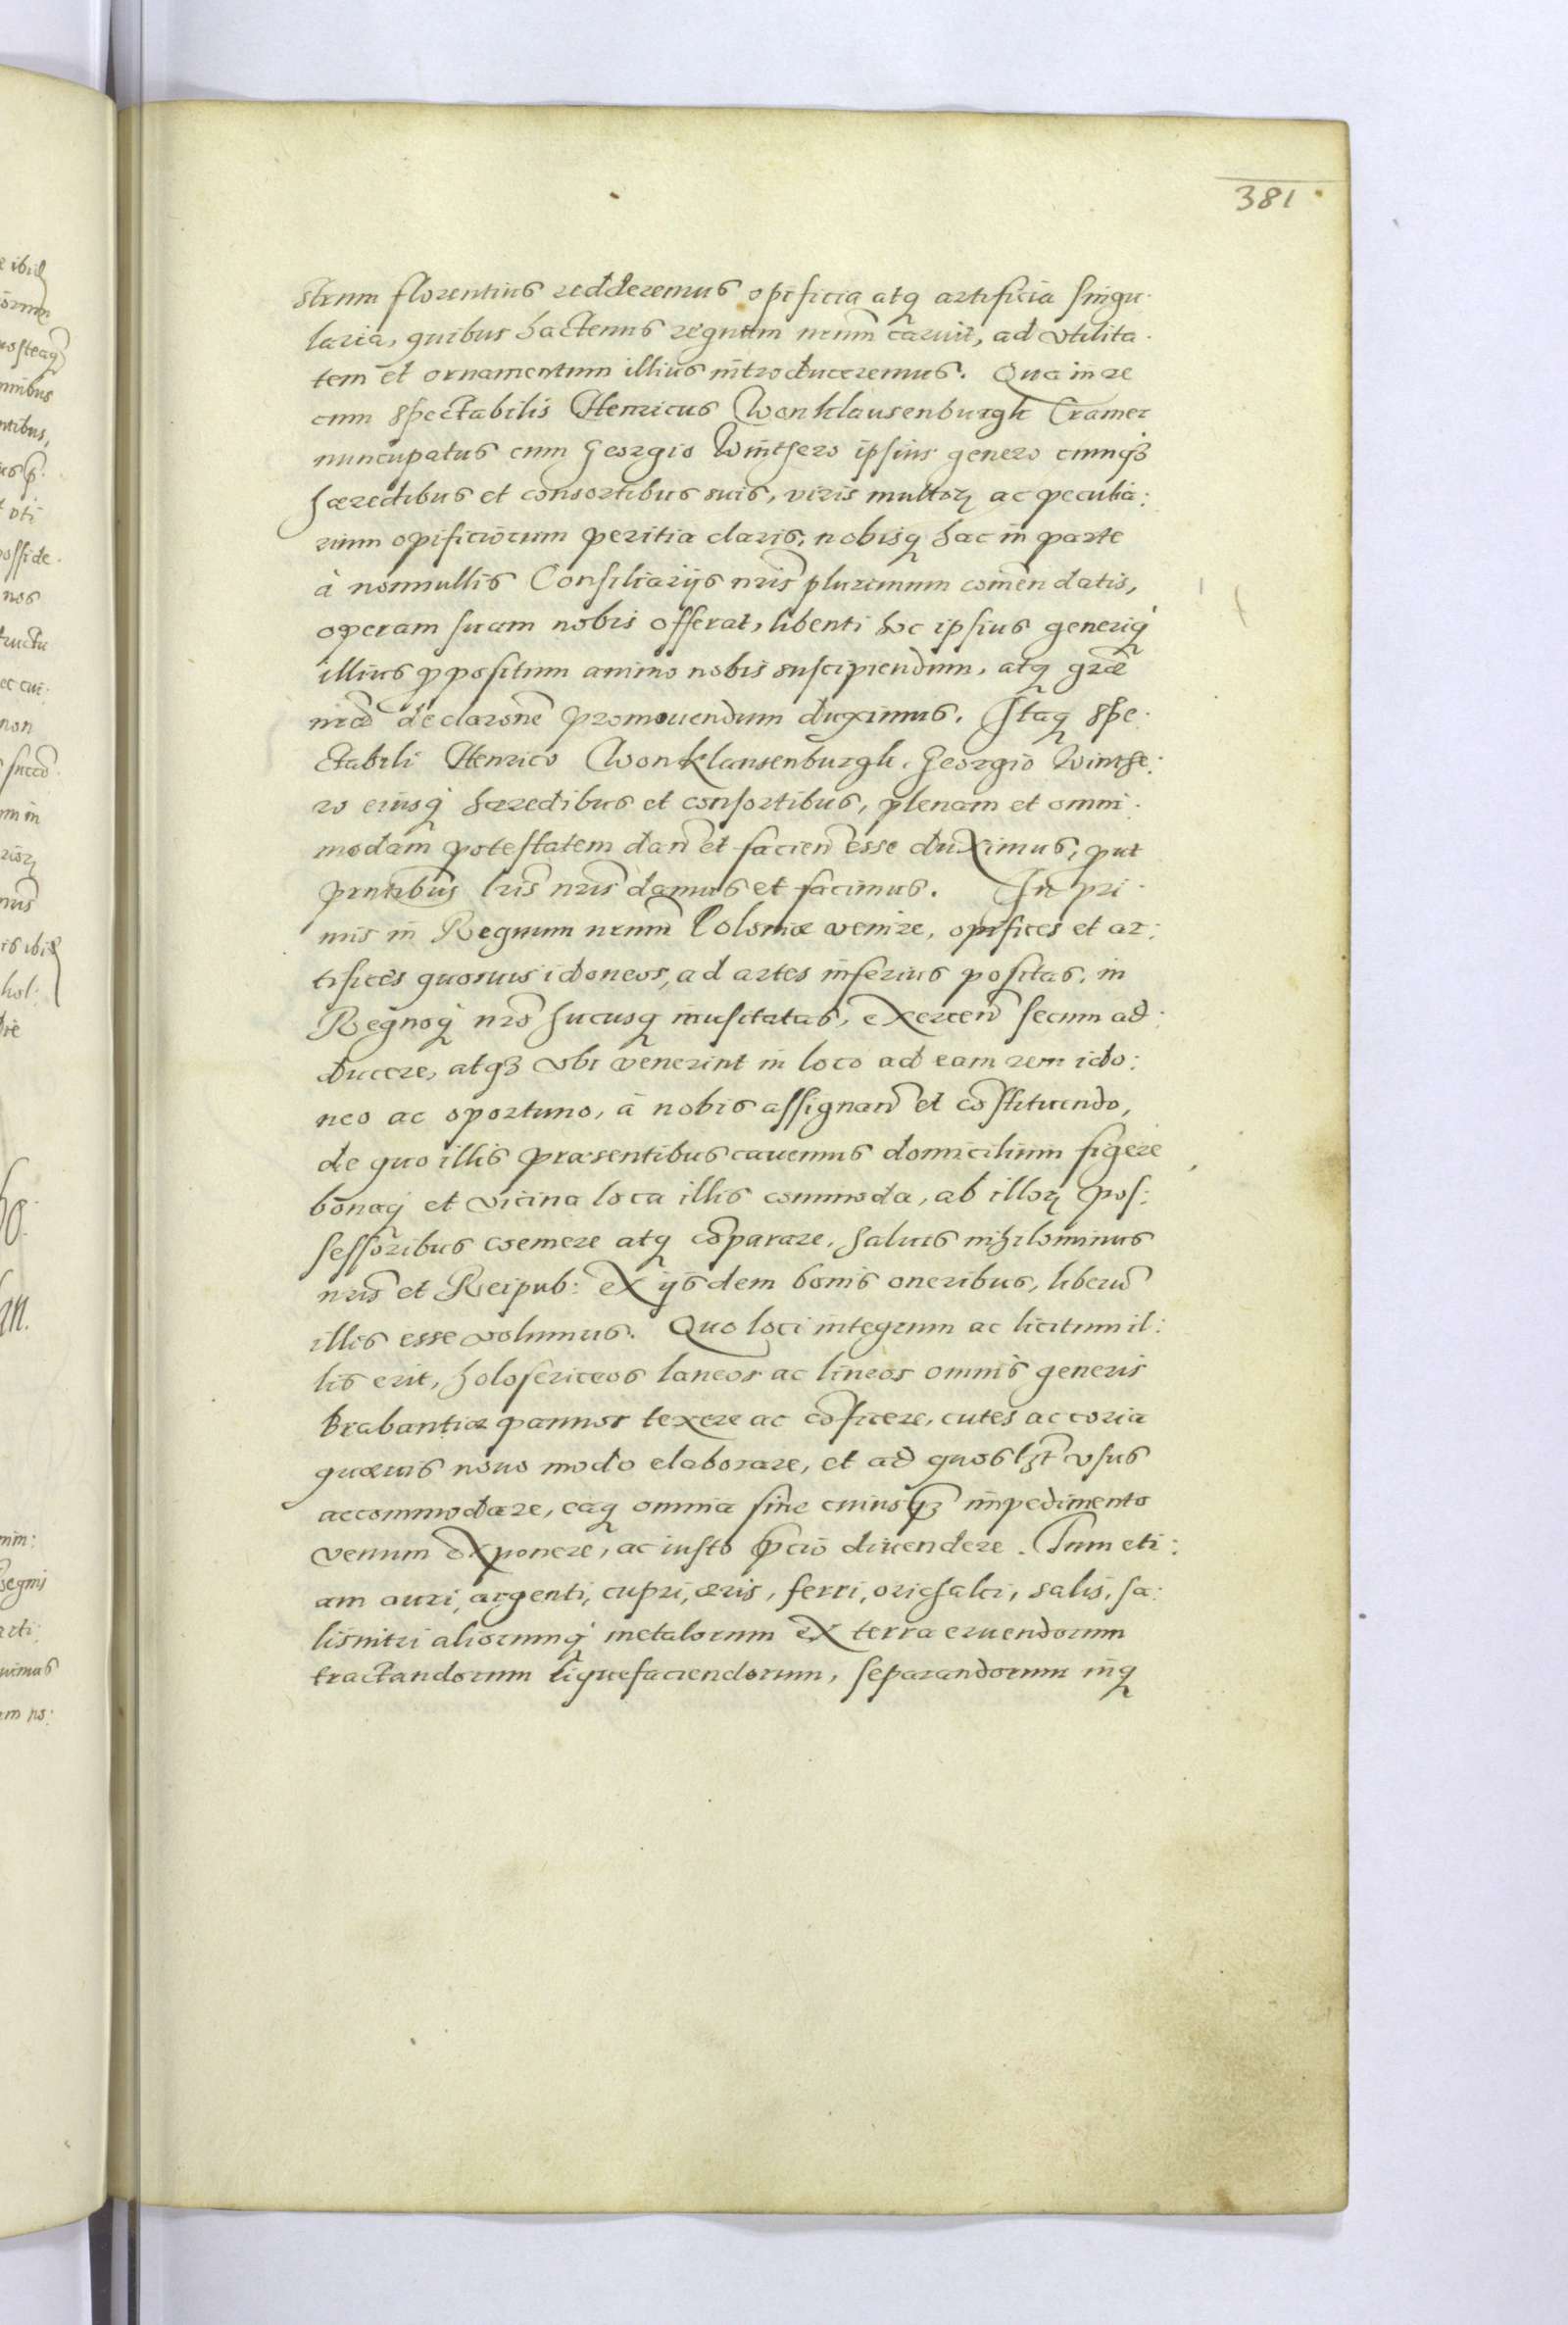 381
strum florentius redderemus opificia atq artificia singu-
laria, quibus hactenus regnum nrum caruit, ad vtilita-
tem et ornamentum illius introduceremus. Qua in re
cum spectabilis Henricus Wonklausenburgk Cramer
nuncupatus cum Georgio Winthero ipsius genero cumq3
haeredibus et consortibus suis, viris multor ac peculia:
rium opificiorum peritia claris, nobisq hac in parte
à nonnullis Consiliarijs nris plurimum comendatis,
operam suam nobis offerat, libenti hoc ipsius generiq
illius ppositum animo nobis suscipiendum, atq grae
nrae declarone promouendum duximus. Itaq spe-
ctabili Henrico Wonklausenburgk, Georgio Winthe:
ro eiusq haeredibus et consortibus, plenam et omni-
modam potestatem dan et facien esse duximus, put
pntibus lris nris damus et facimus. In pri-
mis in Regnum nrum Poloniae venire, opifices et ar:
tifices quosuis idoneos, ad artes inferius positas, in
Regnoq nro hucusq inusitatas, exercen secum ad:
ducere, atq3 vbi venerint in loco ad eam rem ido:
neo ac oportuno, à nobis assignan et costituendo,
de quo illis praesentibus cauemus domicilium figere
bonaq et vicina loca illis commoda, ab illor pos:
sessoribus coemere atq coparare, saluis nihilominus
nris et Reipub: ex ijsdem bonis oneribus, liberu
illis esse volumus. Quo loci integrum ac licitum il:
lis erit, holosericeos laneos ac lineos omnis generis
Brabantiae pannos texere ac coficere, cutes ac coria
quaeuis nouo modo elaborare, et ad quosl3t vsus
accommodare, eaq omnia sine cuiusq3 impedimento
venum exponere, ac iusto pcio diuendere. Tum eti:
am auri, argenti, cupri, aeris, ferri, orichalci, salis, sa:
lisnitri aliorumq metalorum ex terra eruendorum
tractandorum liquefaciendorum, separandorum inq